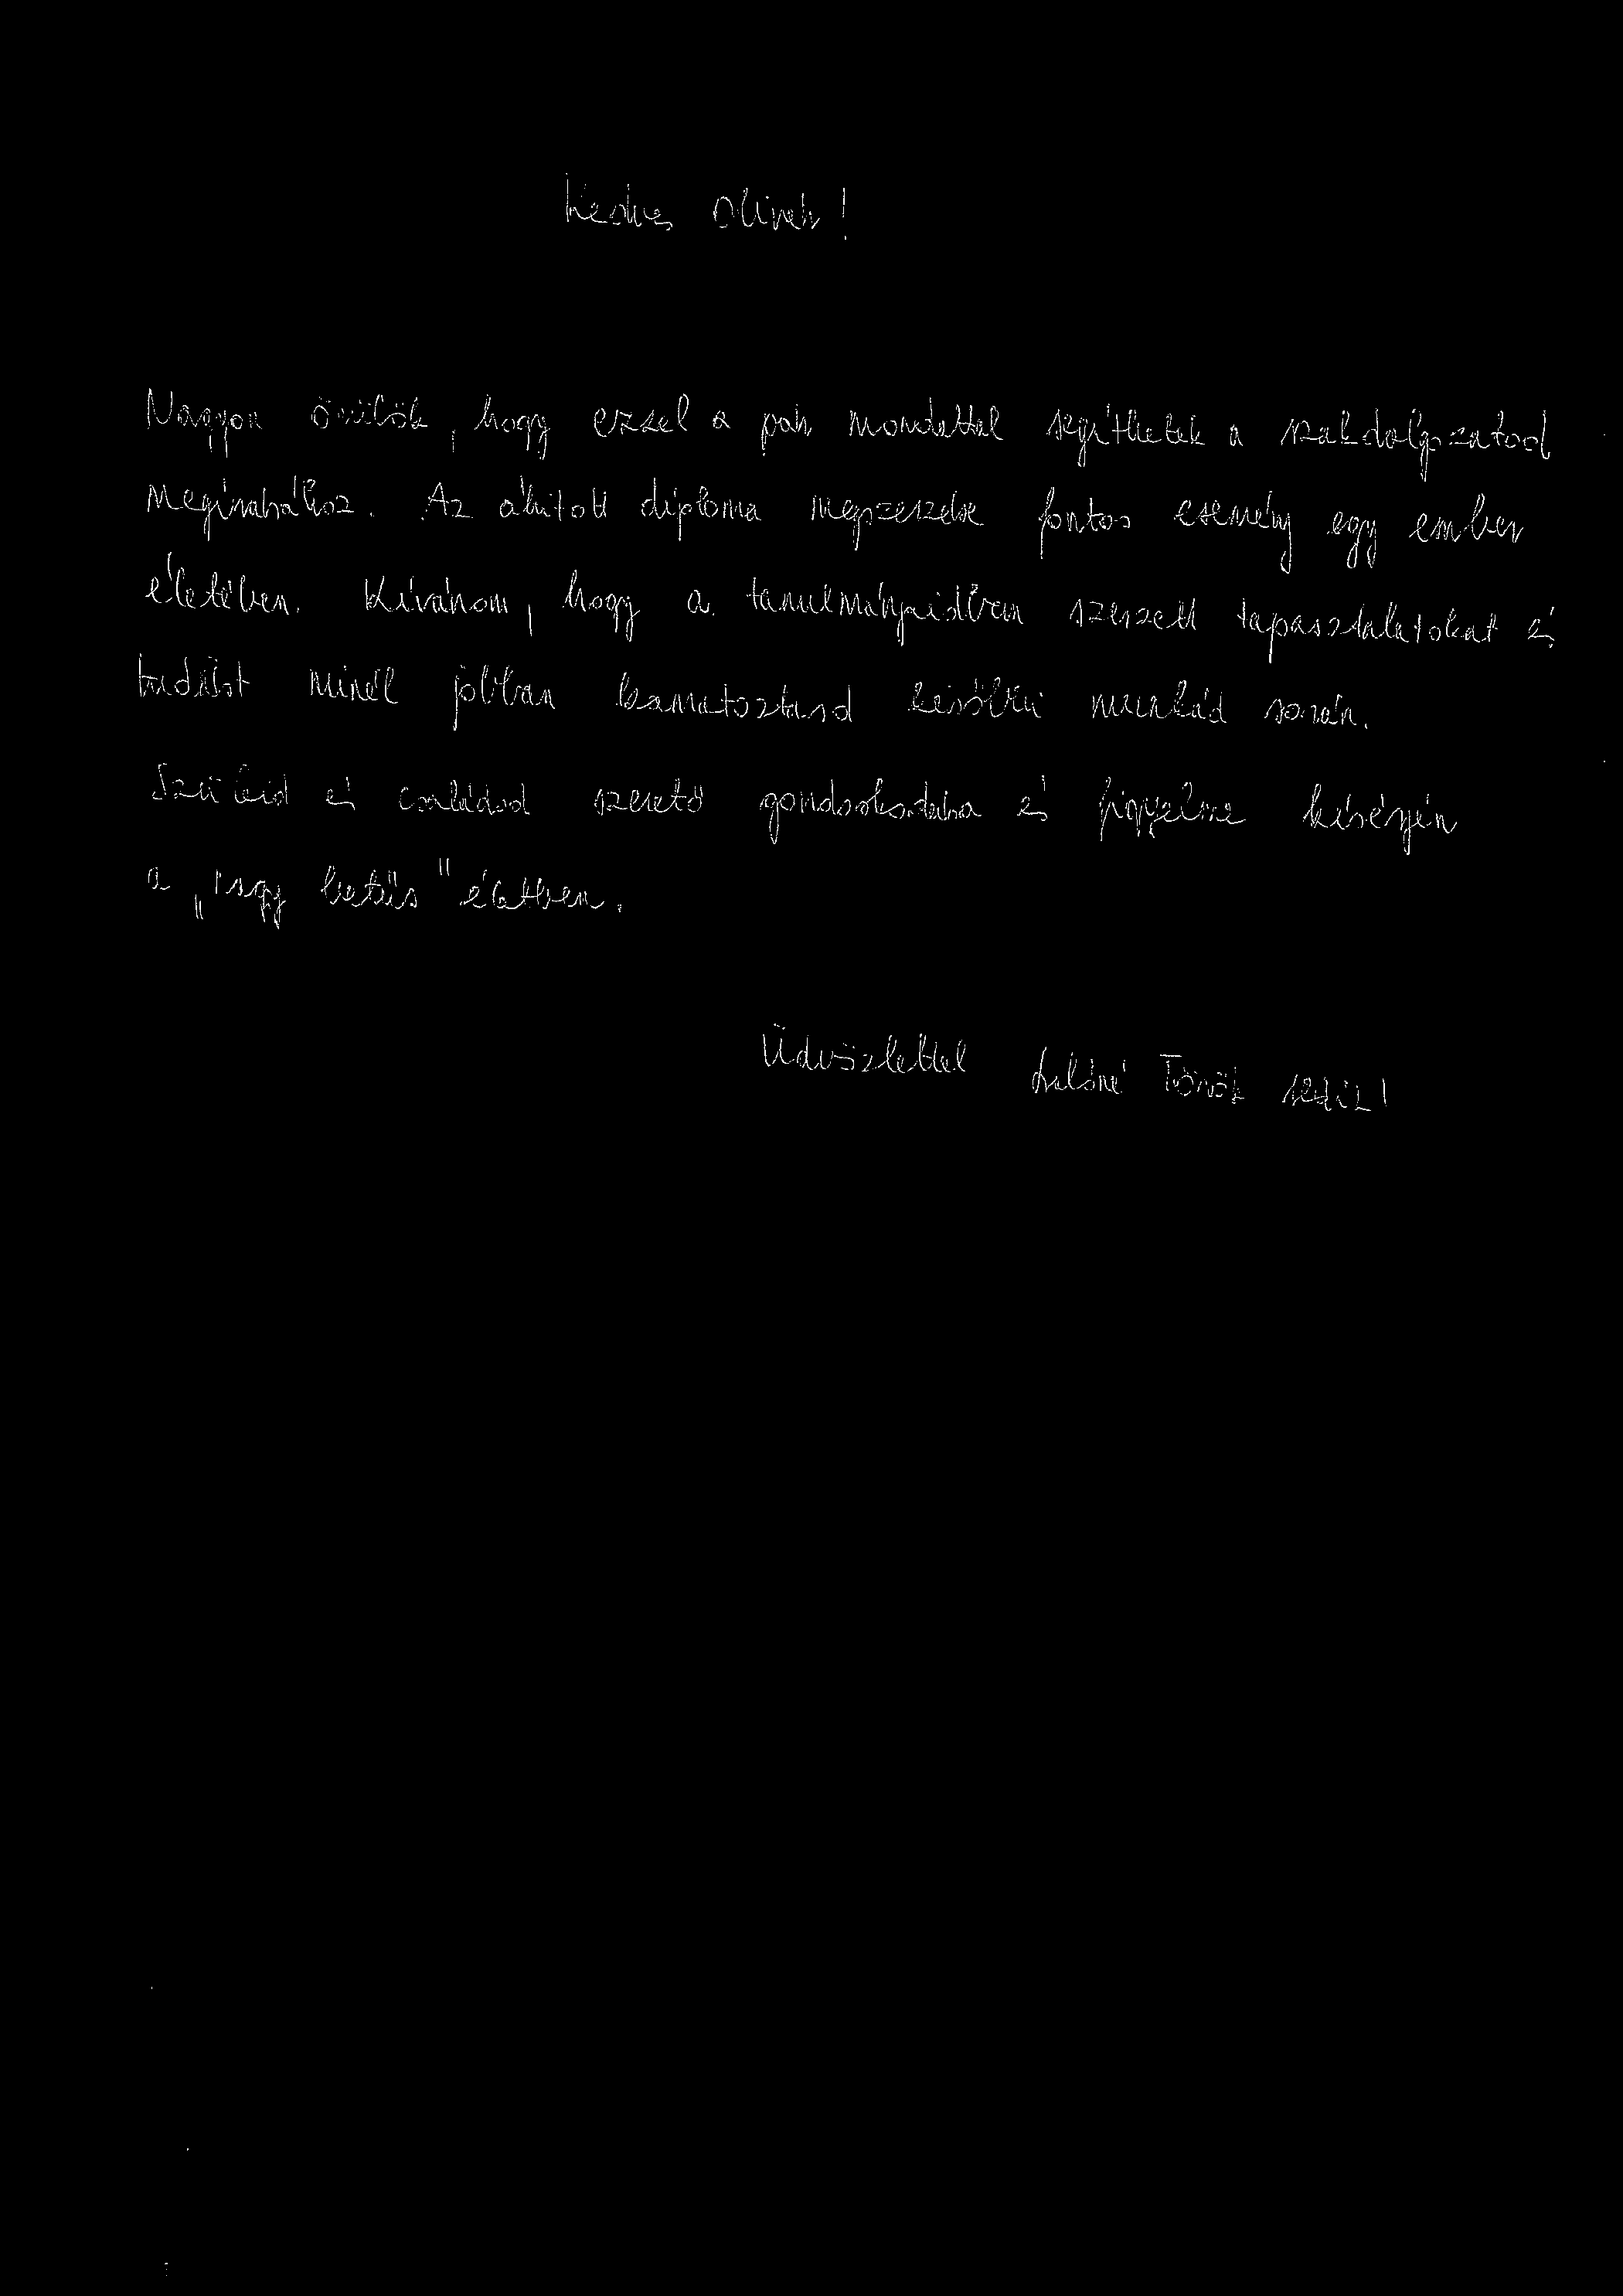 Kedves Olivér!
Nagyon örülök, hogy ezzel a pár mondattal segíthetek a szakdolgozatod
megírásához. Az áhított diploma megszerzése fontos esemény egy ember
életében. Kívánom, hogy a tanulmányaidban szerzett tapasztalatokat és
tudást minél jobban kamatoztasd későbbi munkád során.
Szüleid és családod szerető gondoskodása és figyelme kísérjén
a „nagy betűs" életben.
Üdvözlettel Török